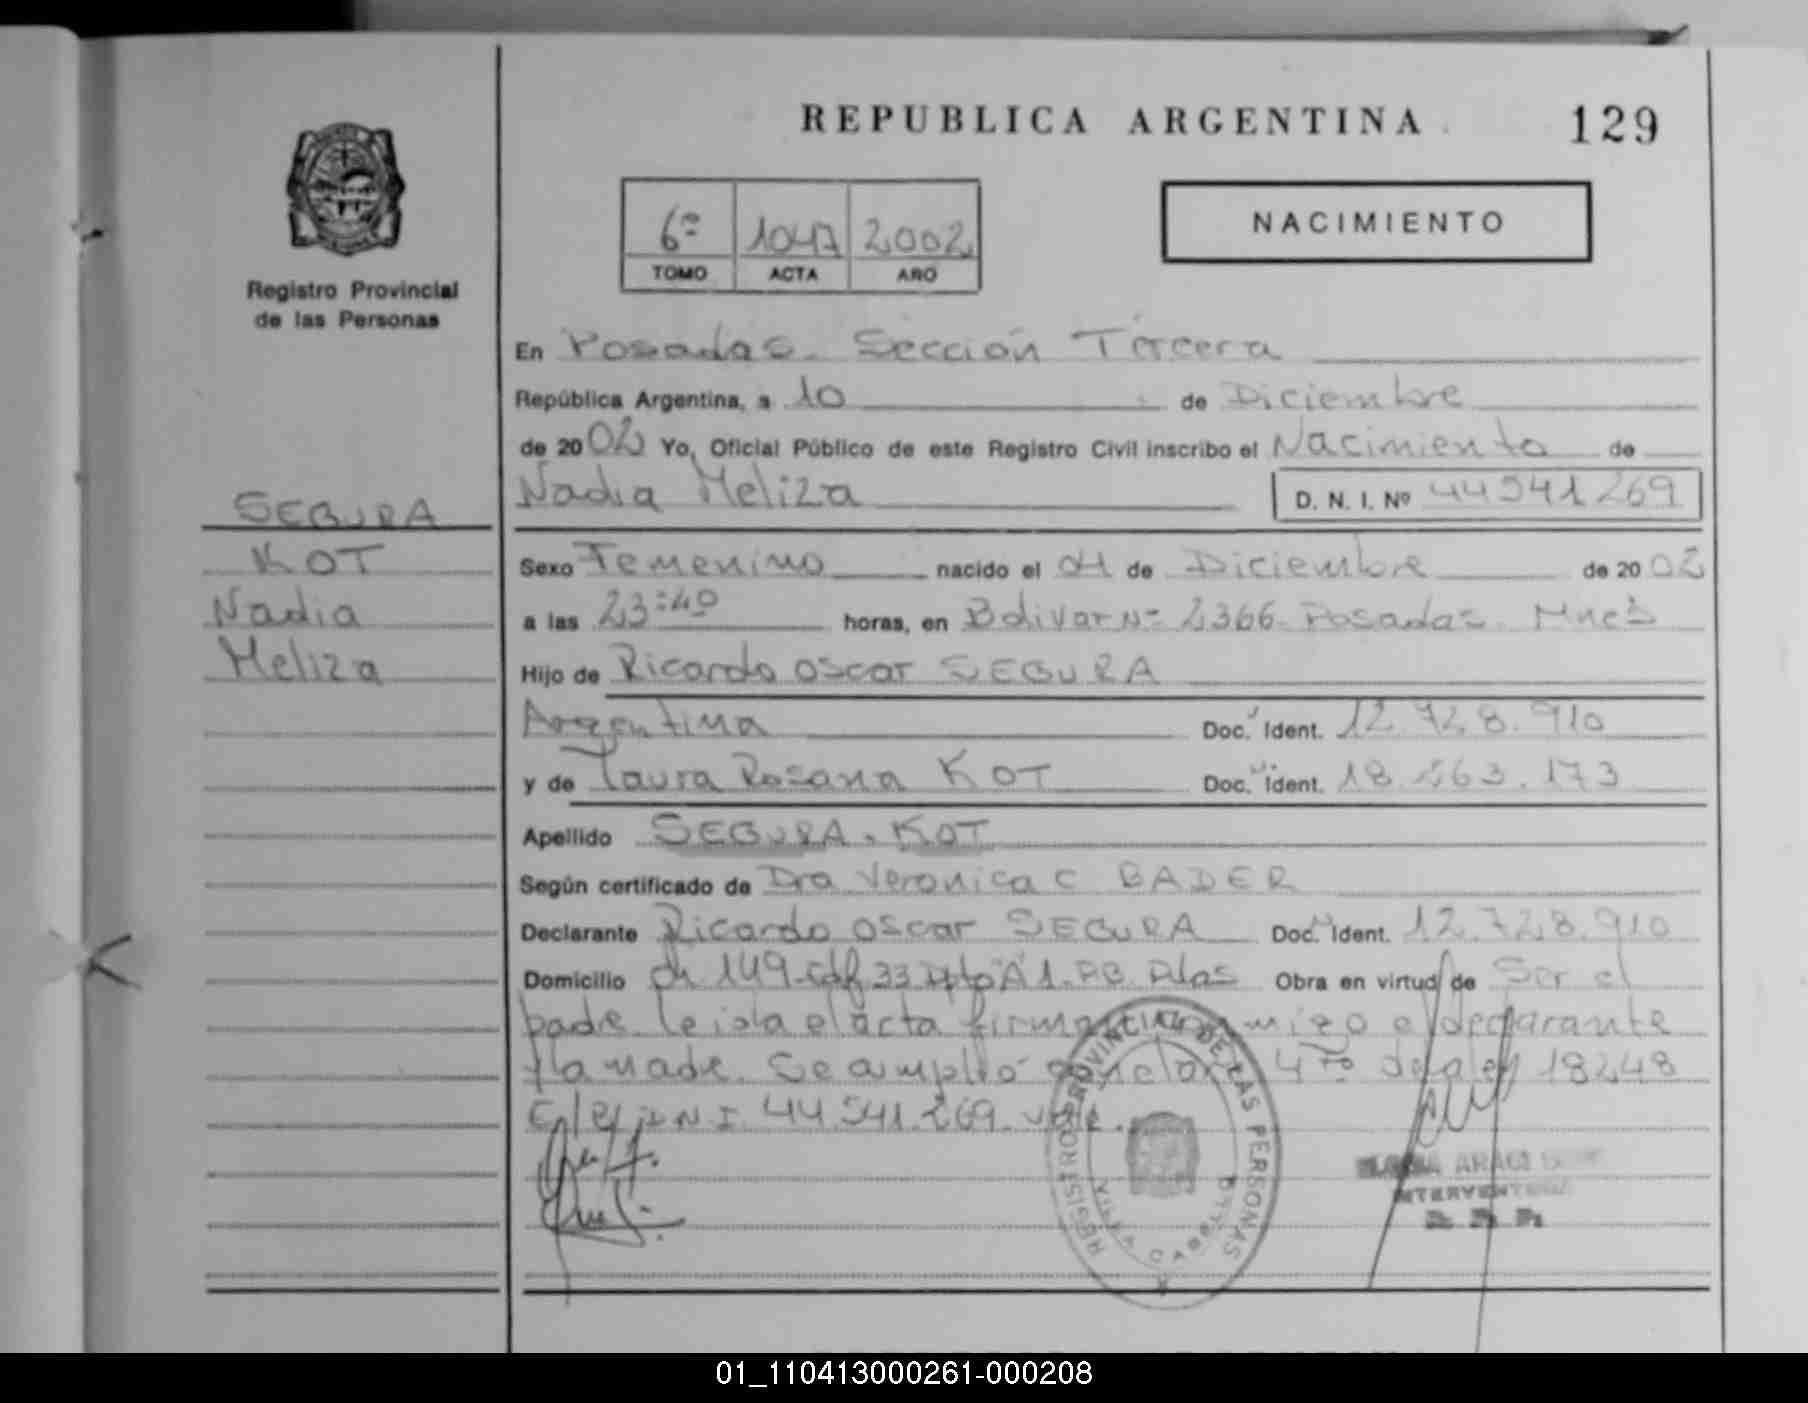 REPUBLICA ARGENTINA
129
6º 1047 2002
TOMO ACTA AÑO
NACIMIENTO
Registro Provincial
de las Personas
En Posadas. Sección Tercera
República Argentina, a 10 de Diciembre
de 2002 Yo, Oficial Público de este Registro Civil inscribo el Nacimiento de
Nadia Meliza D. N. I. Nº 44541269
SEGURA
KOT
Nadia
Meliza
Sexo Femenino nacido el 04 de Diciembre de 2002
a las 23:40 horas, en Bolivar Nº 2366. Posadas. Mnes
Hijo de Ricardo Oscar SEGURA
Argentina Doc. Ident. 12.728.910
y de Laura Rosana KOT Doc. Ident. 18.263.173
Apellido SEGURA. KOT
Según certificado de Dra Veronica C BADER
Declarante Ricardo Oscar SEGURA Doc. Ident. 12.728.910
Domicilio Ch. 149. Edf 33 Dpto A 1. P.B. Pdas Obra en virtud de Ser el
padre. Leida el acta firman conmigo el declarante
y la madre. Se amplió 4to de la ley 18248
D N I. 44.541.269. vale.
REGISTRO PROVINCIAL DE LAS PERSONAS
VILLA CABELLO
INTERVENTORA
R. P. P.
01_110413000261-000208